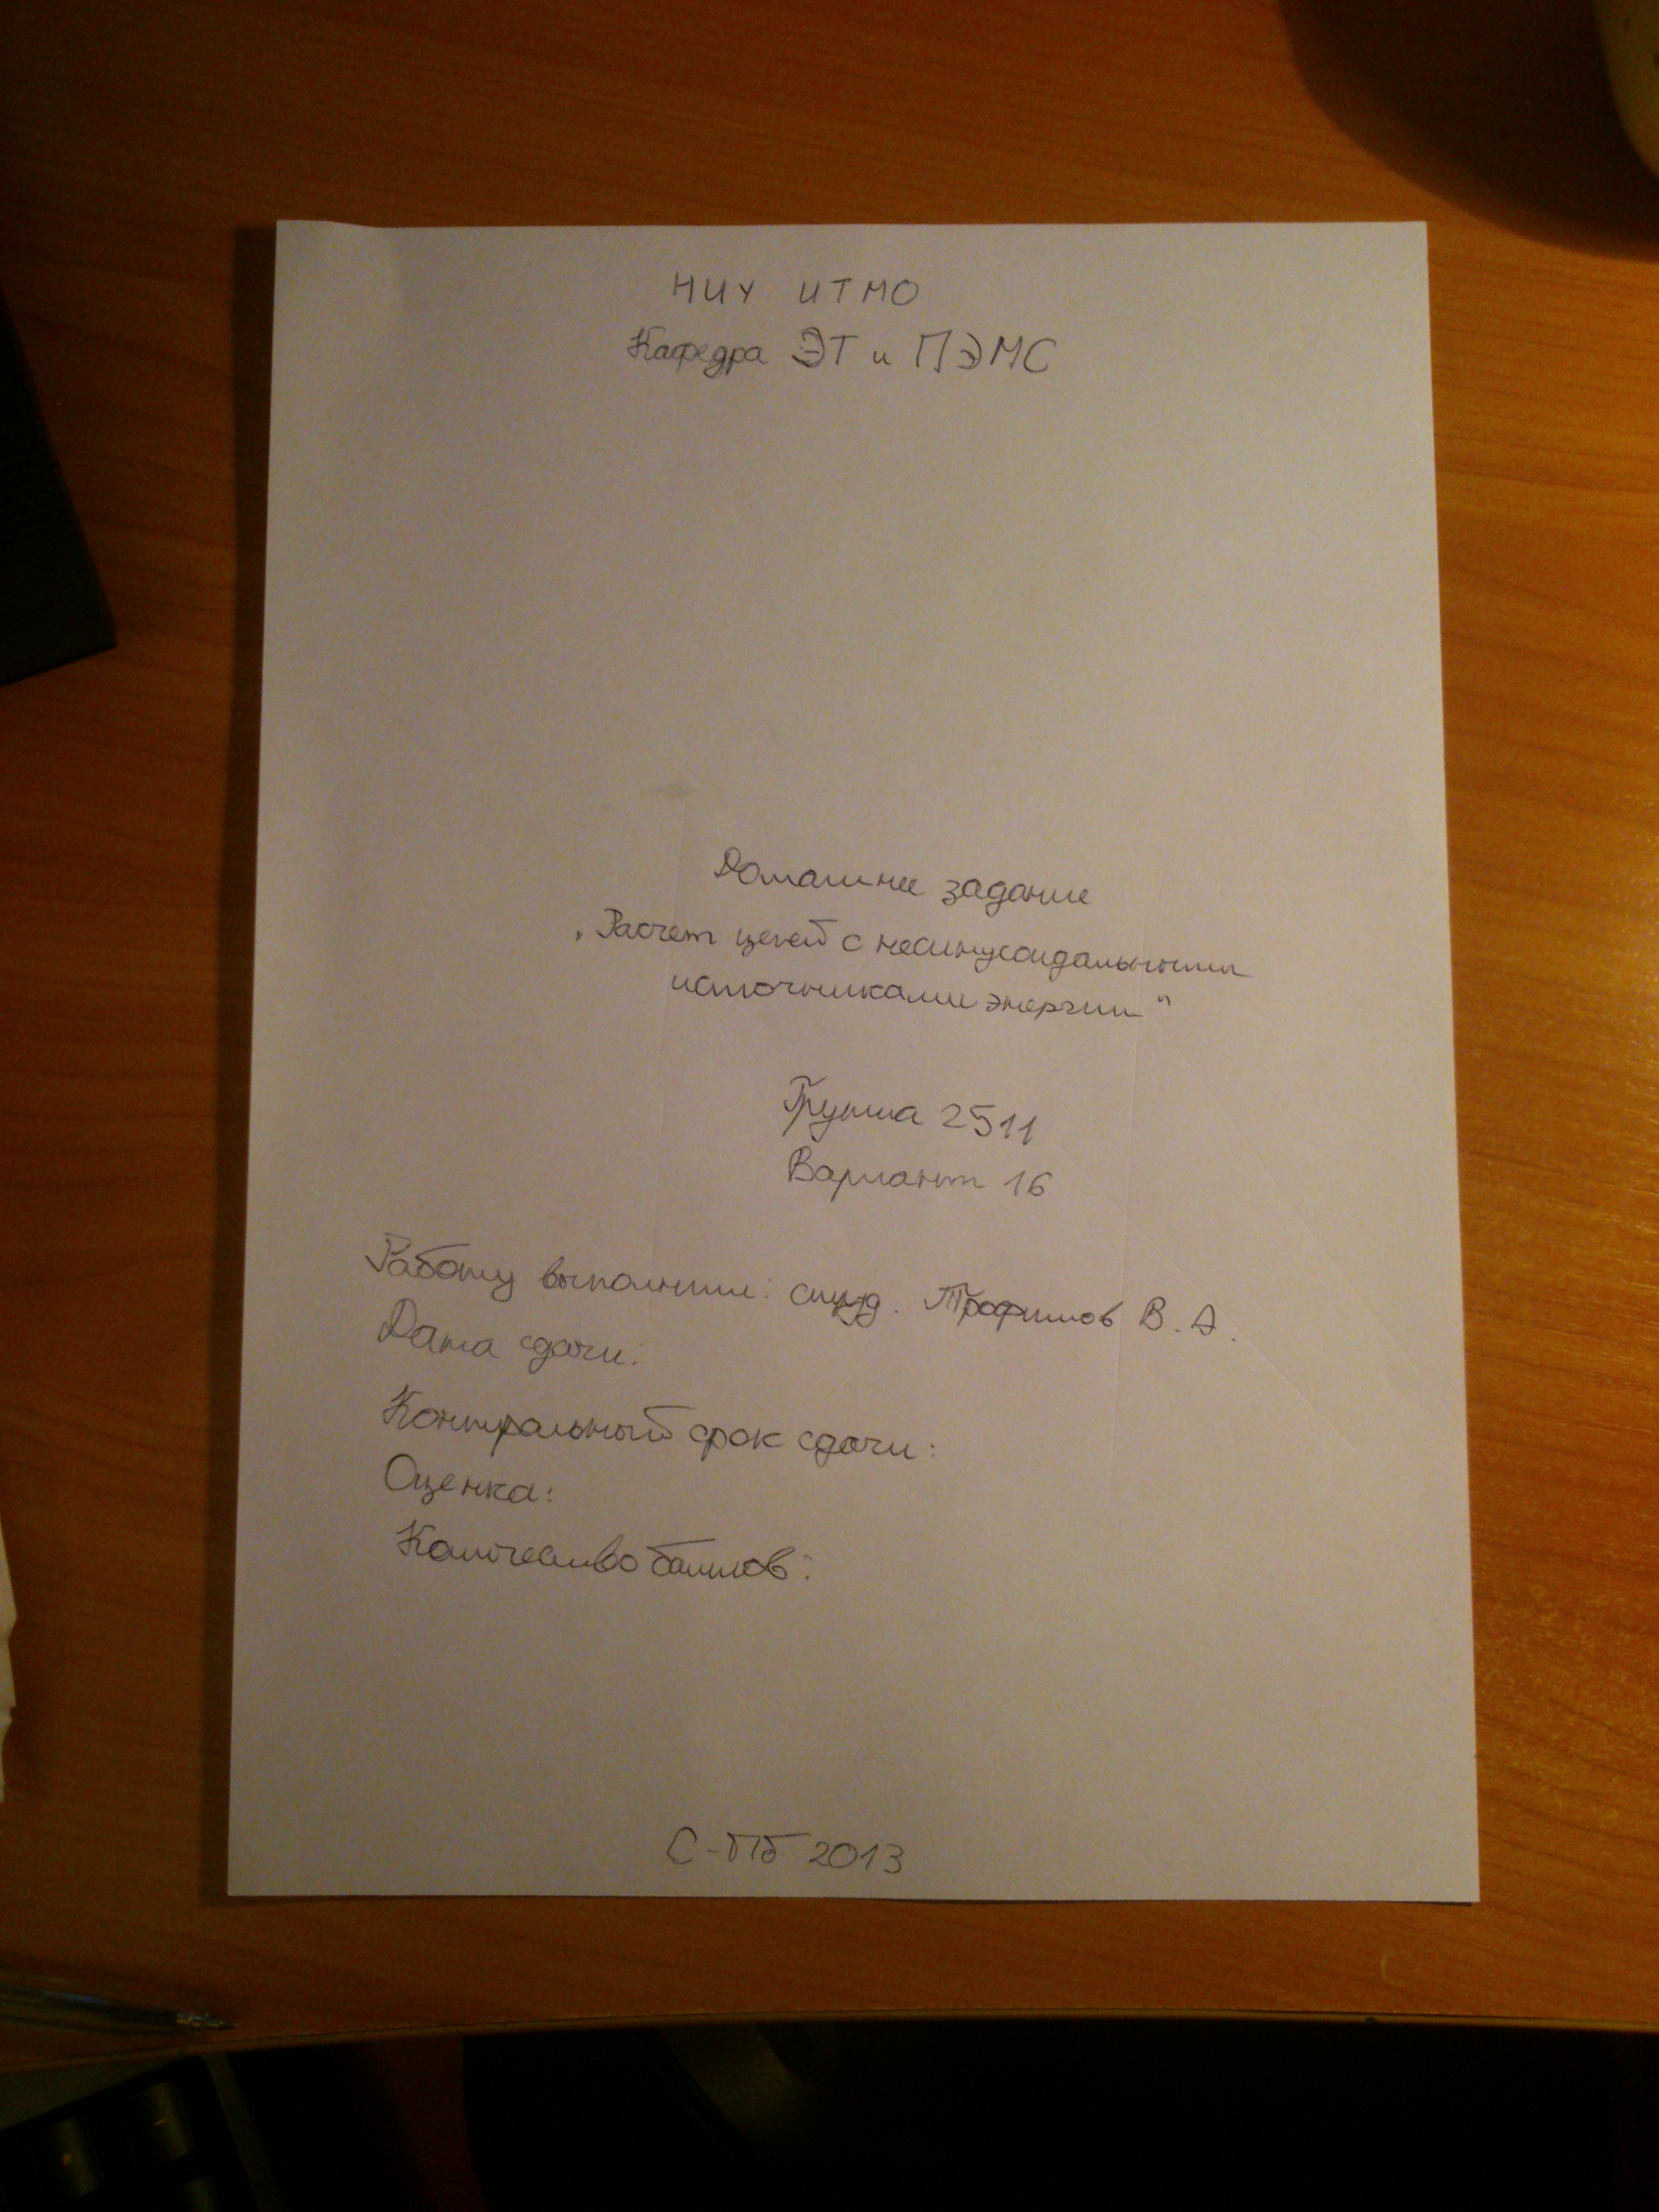 НИУ ИТМО
Кафедра ЭТ и ПЭМС
Домашнее задание
„Расчет цепей с несинусоидальными
источниками энергии"
Группа 2511
Вариант 16
Работу выполнил: студ. Трофимов В. А.
Дата сдачи:
Контрольный срок сдачи:
Оценка:
Количество баллов:
С-Пб 2013